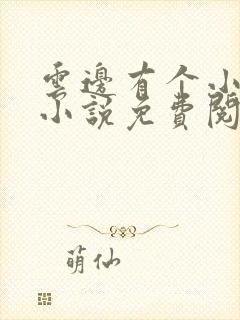 雲邊有个小
小說免費閱
萌仙